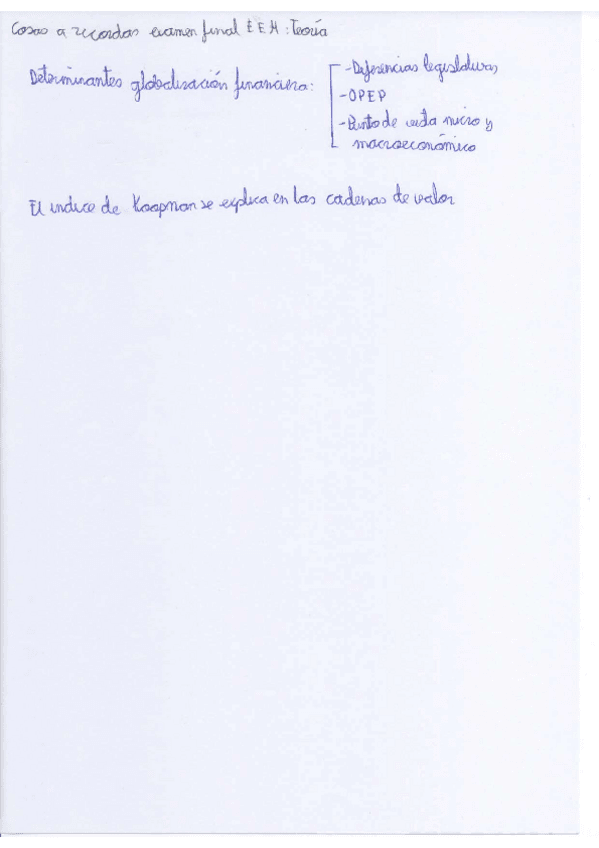 Cosas a recordar examen final E.E.M: Teoría
Determinantes globalización financiera:
- Diferencias legislativas
- OPEP
- Punto de vista micro y
macroeconómico
El indice de Koopman se explica en las cadenas de valor